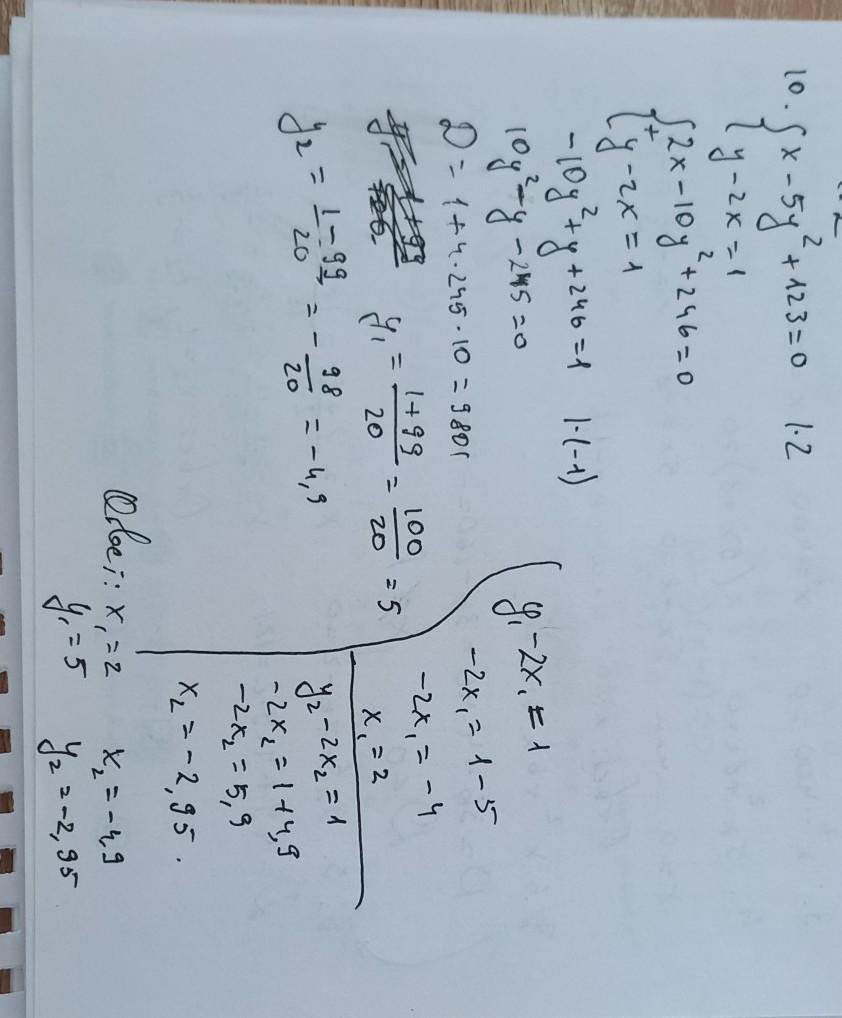 10. { x - 5y² + 123 = 0 | · 2
{ y - 2x = 1
{ 2x - 10y² + 246 = 0
+
{ y - 2x = 1
-10y² + y + 246 = 1 | · (-1)
10y² - y - 245 = 0
D = 1 + 4 · 245 · 10 = 9801
y₁ = (1 + 99)/20 = 100/20 = 5
y₂ = (1 - 99)/20 = - 98/20 = -4,9
y₁ - 2x₁ = 1
-2x₁ = 1 - 5
-2x₁ = -4
x₁ = 2
y₂ - 2x₂ = 1
-2x₂ = 1 + 4,9
-2x₂ = 5,9
x₂ = -2,95.
Ответ: x₁ = 2 x₂ = -4,9
y₁ = 5 y₂ = -2,95